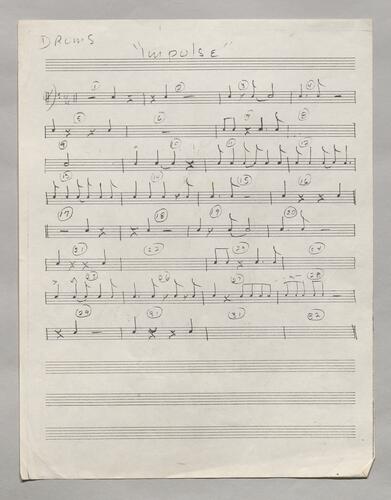 DRUMS
"Impulse"
1 2 3 4
5 6 7 8
9 10 11 12
13 14 15 16
17 18 19 20
21 22 23 24
25 26 27 28
29 30 31 32